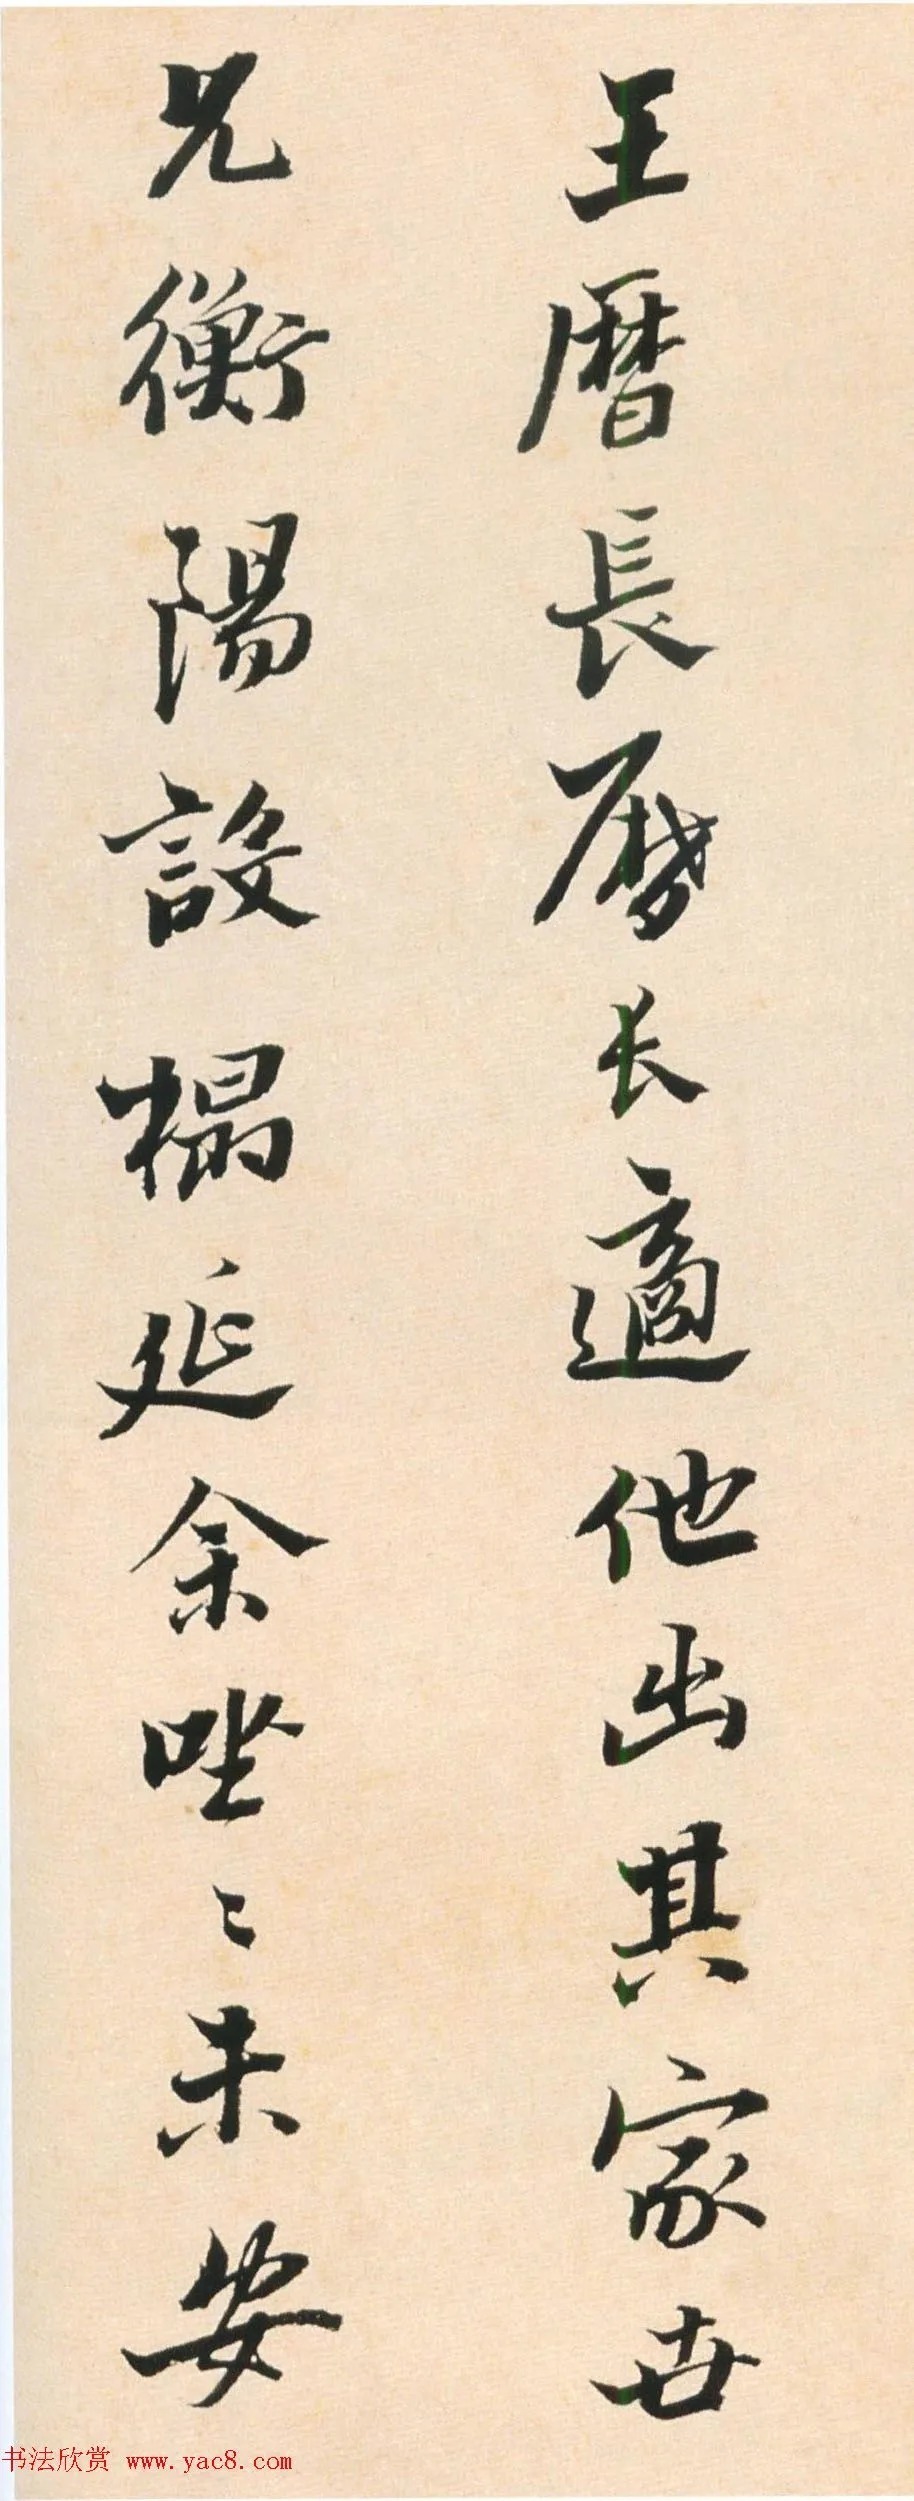 王曆長曆長適他出其家世
兄衡陽設榻延余坐〻未安
书法欣赏 www.yac8.com